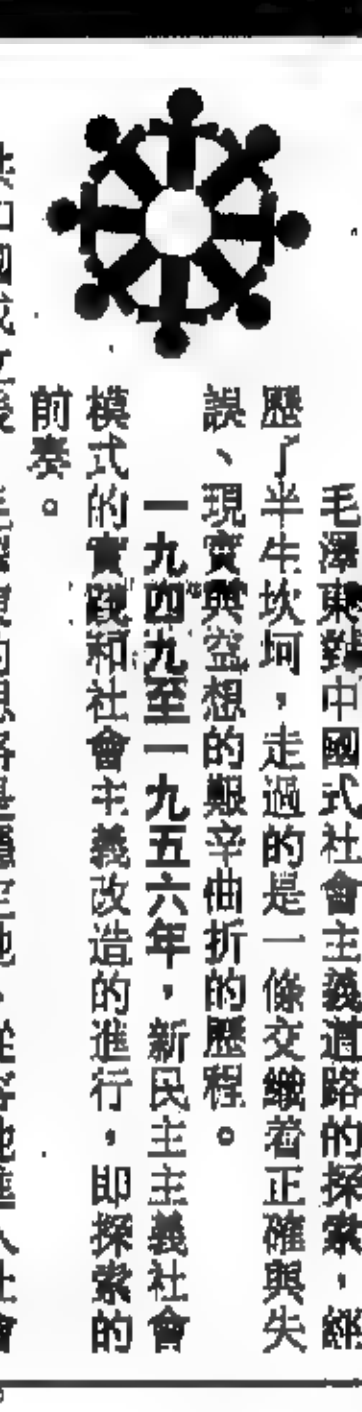 毛澤東對中國式社會主義道路的探索,經
歷了半生坎坷,走過的是一條交織着正確與失
誤、現實與空想的艱辛曲折的歷程。
一九四九至一九五六年,新民主主義社會
模式的實踐和社會主義改造的進行,即探索的
前奏。